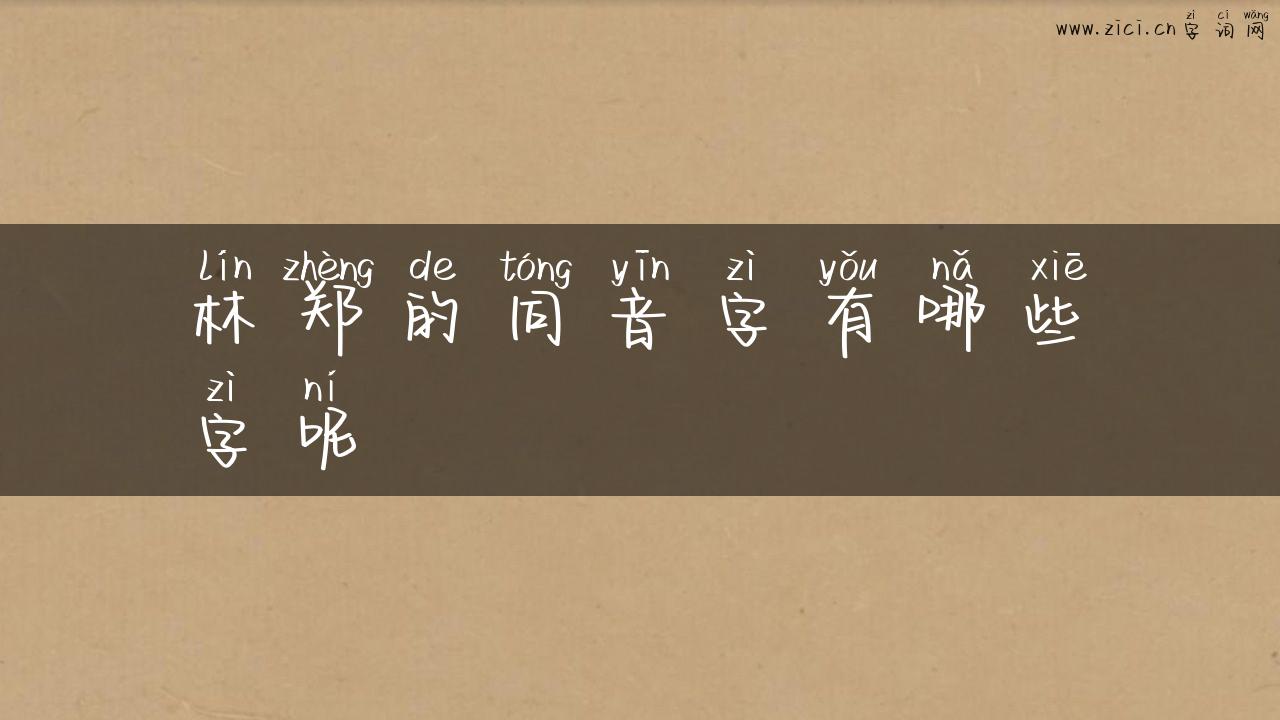 zì cí wǎng
www.zici.cn 字词网
lín zhèng de tóng yīn zì yǒu nǎ xiē
林郑的同音字有哪些
zì ní
字呢